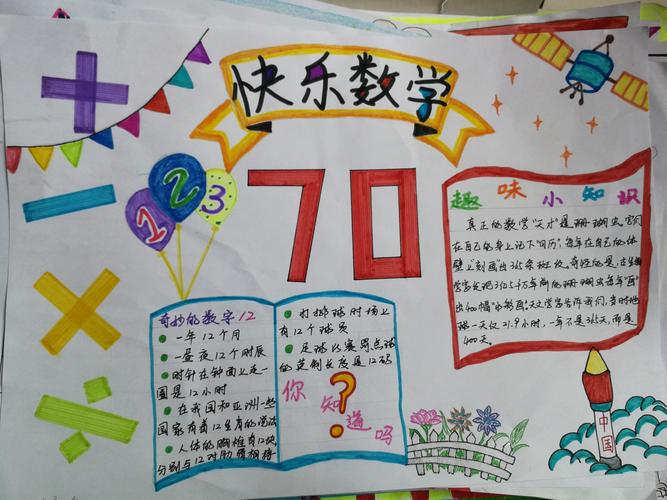 快乐数学
1 2 3
70
趣味小知识
真正的数学"天才"是珊瑚虫。它们
在自己的身上记下"日历",每年在自己的体
壁上"刻画"出365条斑纹。奇怪的是,古生物
学家发现3亿5千万年前的珊瑚虫每年"画"
出400幅"水彩画"。天文学家告诉我们,当时地
球一天仅21.9小时,一年不是365天,而是
400天。
奇妙的数字12
一年12个月
一昼夜12个时辰
时针在钟面上走一
圈是12小时
在我国和亚洲一些
国家有着12生肖的说法
人体的胸椎有12块,
分别与12对肋骨相接
打排球时场上
有12个球员
足球比赛罚点球
的距离长度是12码
你知道吗
?
中国